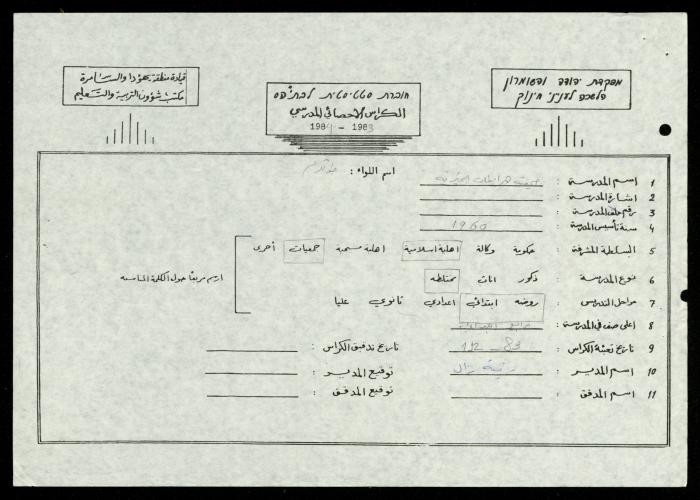 قيادة منطقة يهودا والسامرة
مكتب شؤون التربية والتعليم
חוברת סטטיסטית לבתי"ס
الكراس الإحصائي المدرسي
1984 - 1983
מפקדת יהודה והשומרון
הלשכה לעניני חינוך
اسم اللواء :
1 اسم المدرسة :
2 اشارة المدرسة :
3 رقم ملف المدرسة :
4 سنة تأسيس المدرسة : 1960
5 السلطة المشرفة : حكومية وكالة اهلية اسلامية اهلية مسيحية جمعيات أخرى
6 نوع المدرسة : ذكور اناث مختلطة
ارسم مربعا حول الكلمة المناسبة
7 مراحل التدريس : روضة ابتدائي اعدادي ثانوي عليا
8 اعلى صف في المدرسة :
9 تاريخ تعبئة الكراس : 83 تاريخ تدقيق الكراس :
10 اسم المدير : توقيع المدير :
11 اسم المدقق : توقيع المدقق :